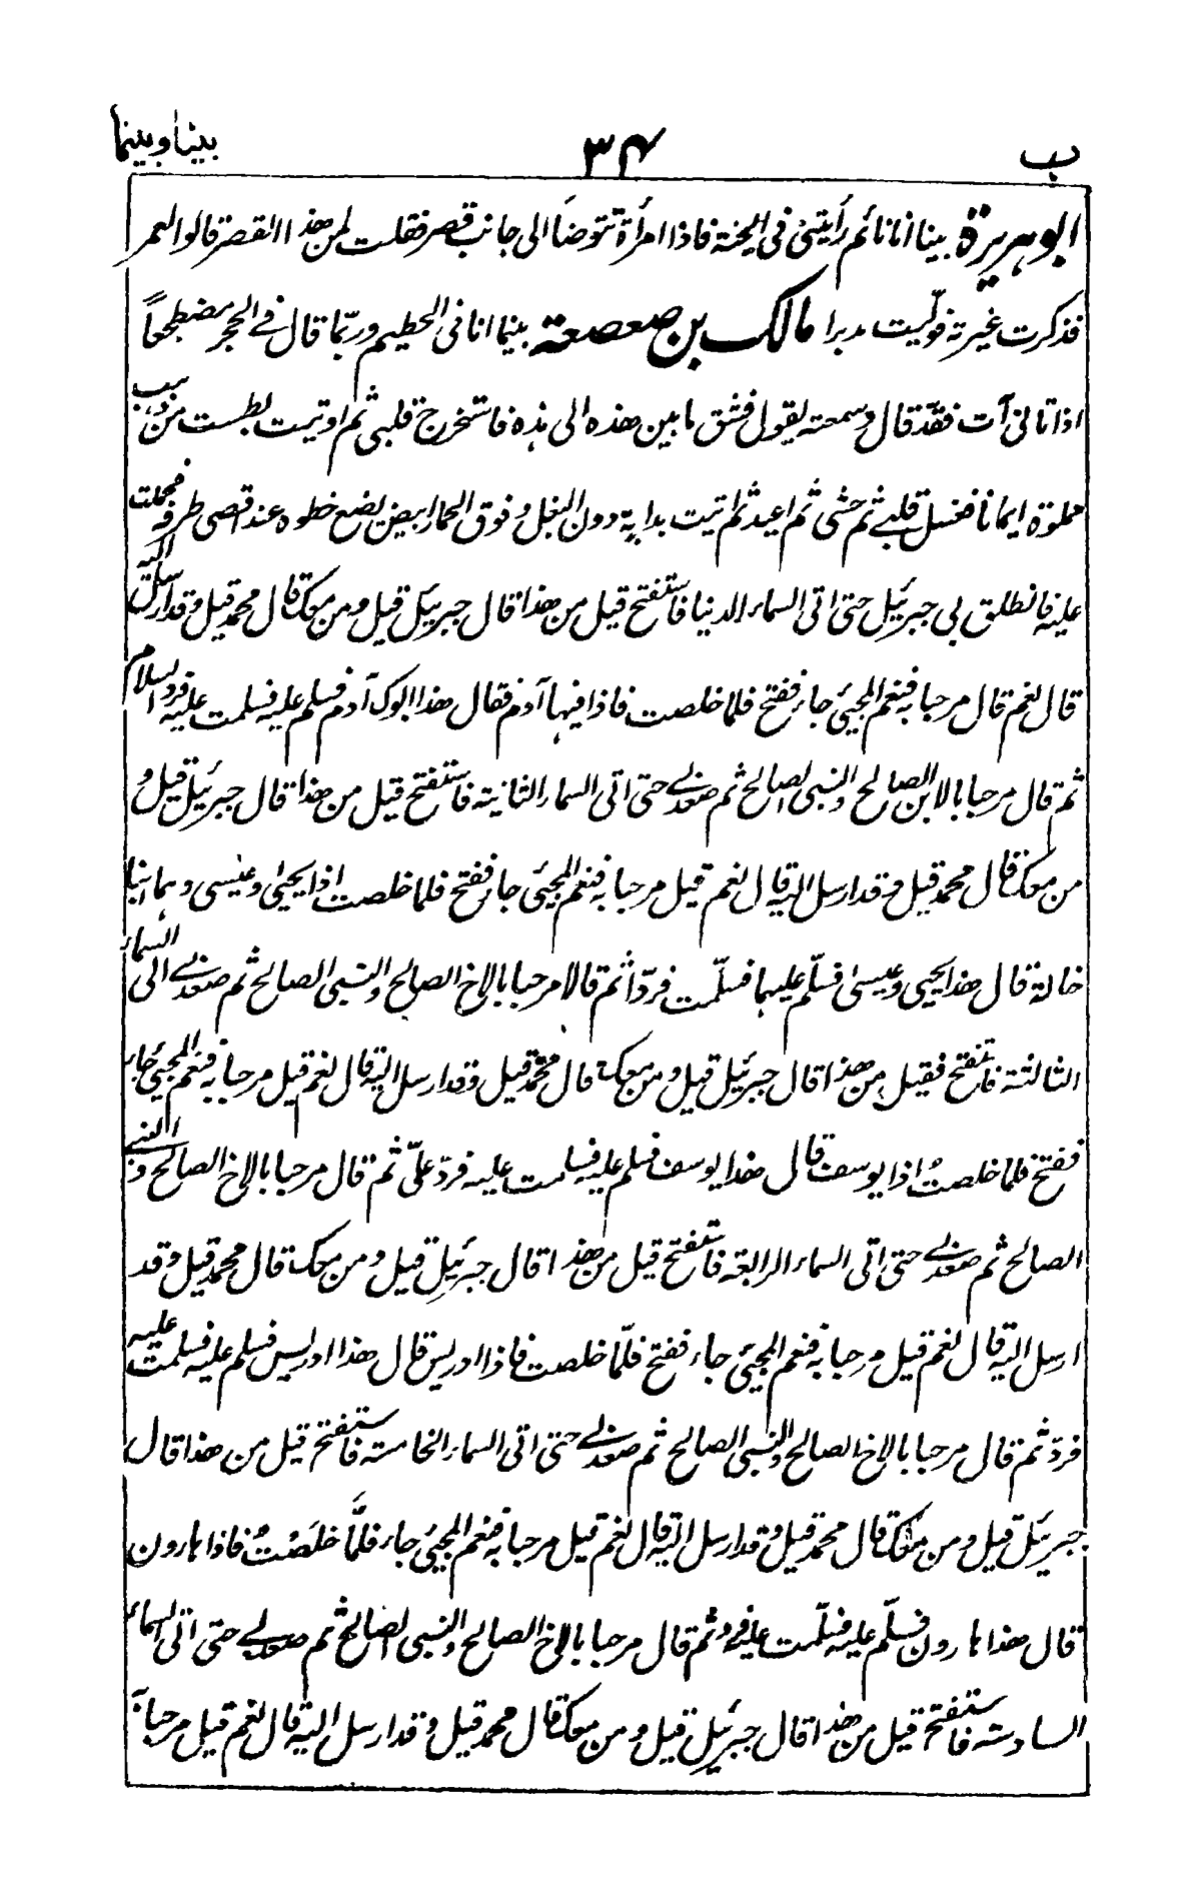 ب ٣٤ بينا وبينما
ابوهريرة بينا انا نائم رأيتنى فى الجنة فاذا امرأة تتوضأ الى جانب قصر فقلت لمن هذا القصر قالوا لعمر
فذكرت غيرته فولّيت مدبرا مالك بن صعصعة بينما انا فى الحطيم وربّما قال فى الحجر مضطجعاً
اذ اتانى آت فقدّ قال وسمعته يقول فشق مابين هذه الى هذه فاستخرج قلبى ثم اوتيت بطست من ذهب
مملوة ايمانا فغسل قلبى ثم حشى ثم اعيد ثم اتيت بدابة دون البغل وفوق الحمار ابيض يضع خطوه عند اقصى طرفه فحملت
عليه فانطلق بى جبرئيل حتى اتى السماء الدنيا فاستفتح قيل من هذا قال جبرئيل قيل ومن معك قال محمد قيل وقد ارسل اليه
قال نعم قال مرحبا به فنعم المجيئ جاء ففتح فلما خلصت فاذا فيها آدم فقال هذا ابوك آدم فسلم عليه فسلمت عليه فرد السلام
ثم قال مرحبا بالابن الصالح والنبى الصالح ثم صعد بى حتى اتى السماء الثانية فاستفتح قيل من هذا قال جبرئيل قيل و
من معك قال محمد قيل وقد ارسل اليه قال نعم قيل مرحبا به فنعم المجيئ جاء ففتح فلما خلصت اذا يحيى وعيسى وهما ابنا
خالة قال هذا يحيى وعيسى فسلّم عليهما فسلّمت فردّا ثم قالا مرحبا بالاخ الصالح والنبى الصالح ثم صعد بى الى السماء
الثالثة فاستفتح فقيل من هذا قال جبرئيل قيل ومن معك قال محمّد قيل وقد ارسل اليه قال نعم قيل مرحبا به فنعم المجيئ جاء
ففتح فلما خلصتُ اذا يوسف قال هذا يوسف فسلم عليه فسلمت عليه فردّ علىّ ثم قال مرحبا بالاخ الصالح والنبى
الصالح ثم صعد بى حتى اتى السماء الرابعة فاستفتح قيل من هذا قال جبرئيل قيل ومن معك قال محمد قيل وقد
ارسل اليه قال نعم قيل مرحبا به فنعم المجيئ جاء ففتح فلمّا خلصت فاذا ادريس قال هذا ادريس فسلم عليه فسلمت عليه
فردّ ثم قال مرحبا بالاخ الصالح والنبى الصالح ثم صعد بى حتى اتى السماء الخامسة فاستفتح قيل من هذا قال
جبرئيل قيل ومن معك قال محمد قيل وقد ارسل اليه قال نعم قيل مرحبا به فنعم المجيئ جاء فلمّا خلَصْتُ فاذا هارون
قال هذا هارون فسلّم عليه فسلّمت عليه فرد ثم قال مرحبا بالاخ الصالح والنبى الصالح ثم صعد بى حتى اتى السماء
السادسة فاستفتح قيل من هذا قال جبرئيل قيل ومن معك قال محمد قيل وقد ارسل اليه قال نعم قيل مرحبا به